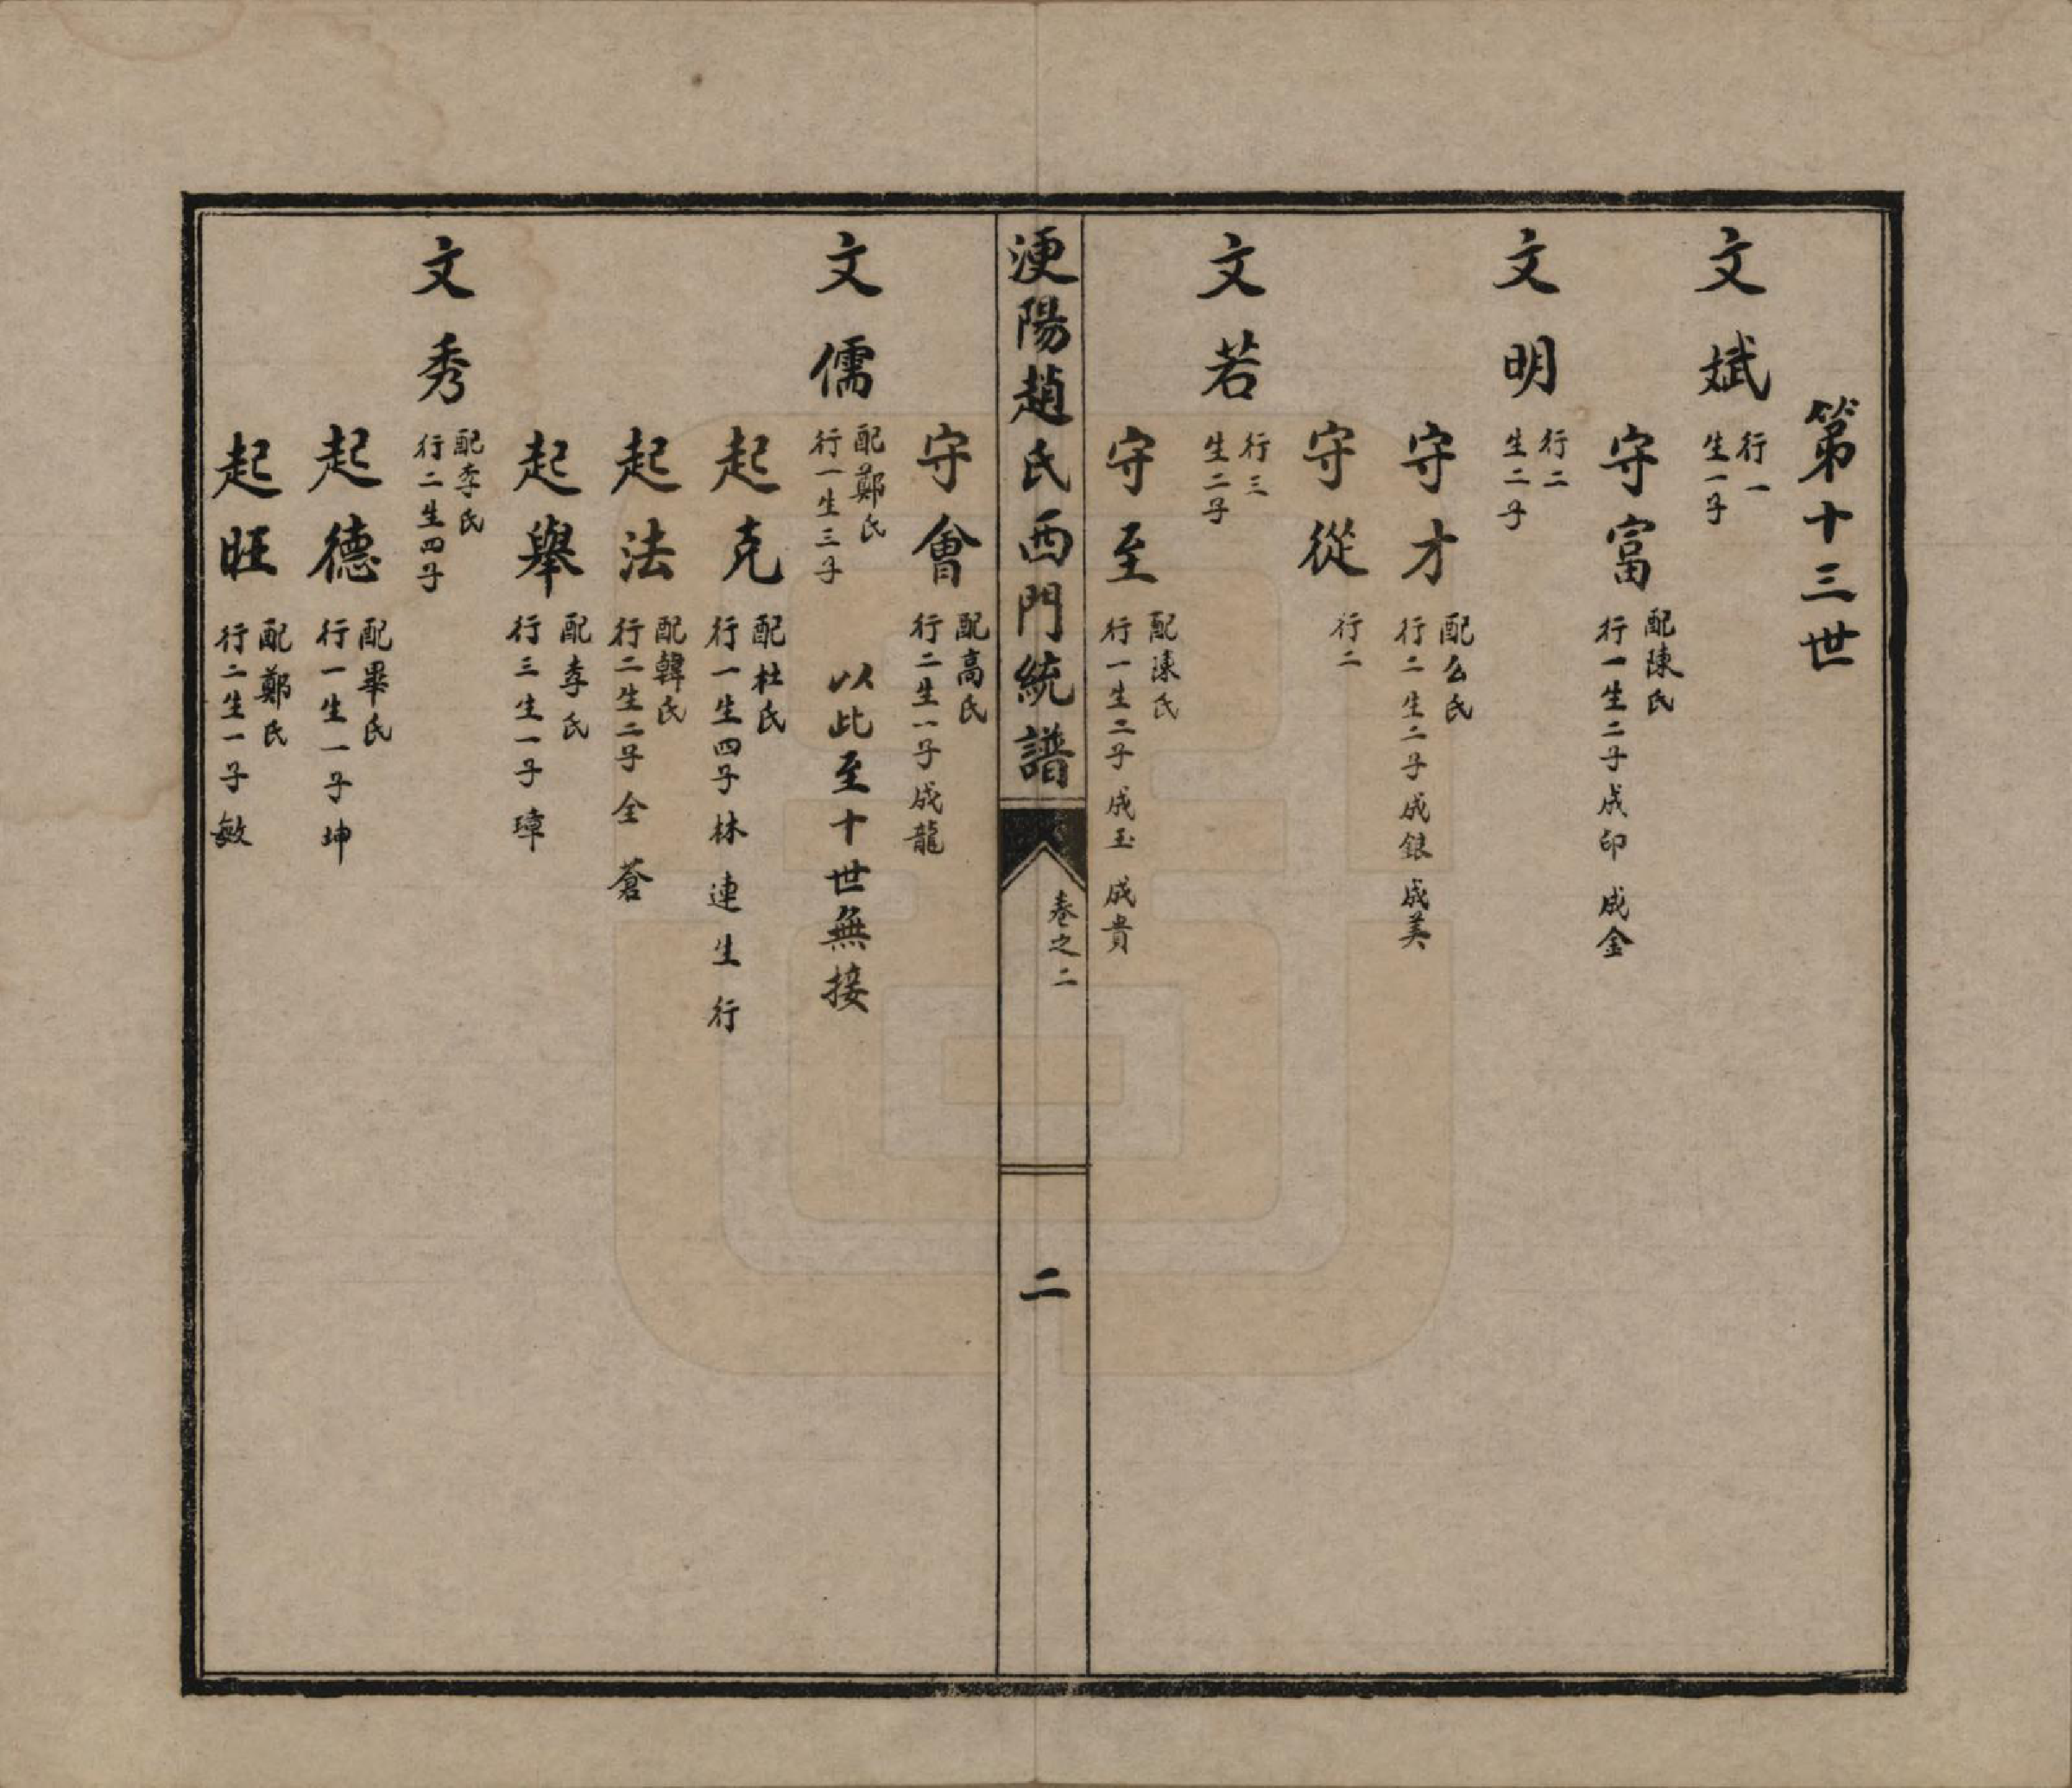 第十三世
文斌 行一 生一子
守富 配陳氏 行一生二子成印 成金
文明 行二 生二子
守才 配公氏 行二生二子成銀 成美
守從 行二
文若 行三 生二子
守至 配陳氏 行一生二子成玉 成貴
浭陽趙氏西門統譜 卷之二 二
守會 配高氏 行二生一子成龍
文儒 配鄭氏 行一生三子 以此至十世無接
起克 配杜氏 行一生四子林 連 生 行
起法 配韓氏 行二生二子全 蒼
起舉 配李氏 行三生一子璋
文秀 配李氏 行二生四子
起德 配畢氏 行一生一子坤
起旺 配鄭氏 行二生一子敏